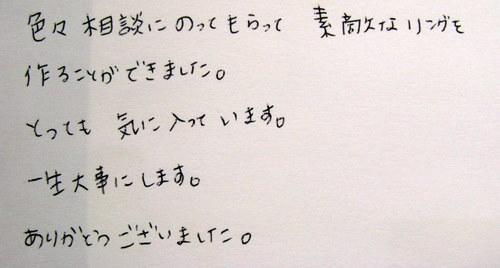 色々相談にのってもらって 素敵なリングを
作ることができました。
とっても 気に入っています。
一生大事にします。
ありがとうございました。